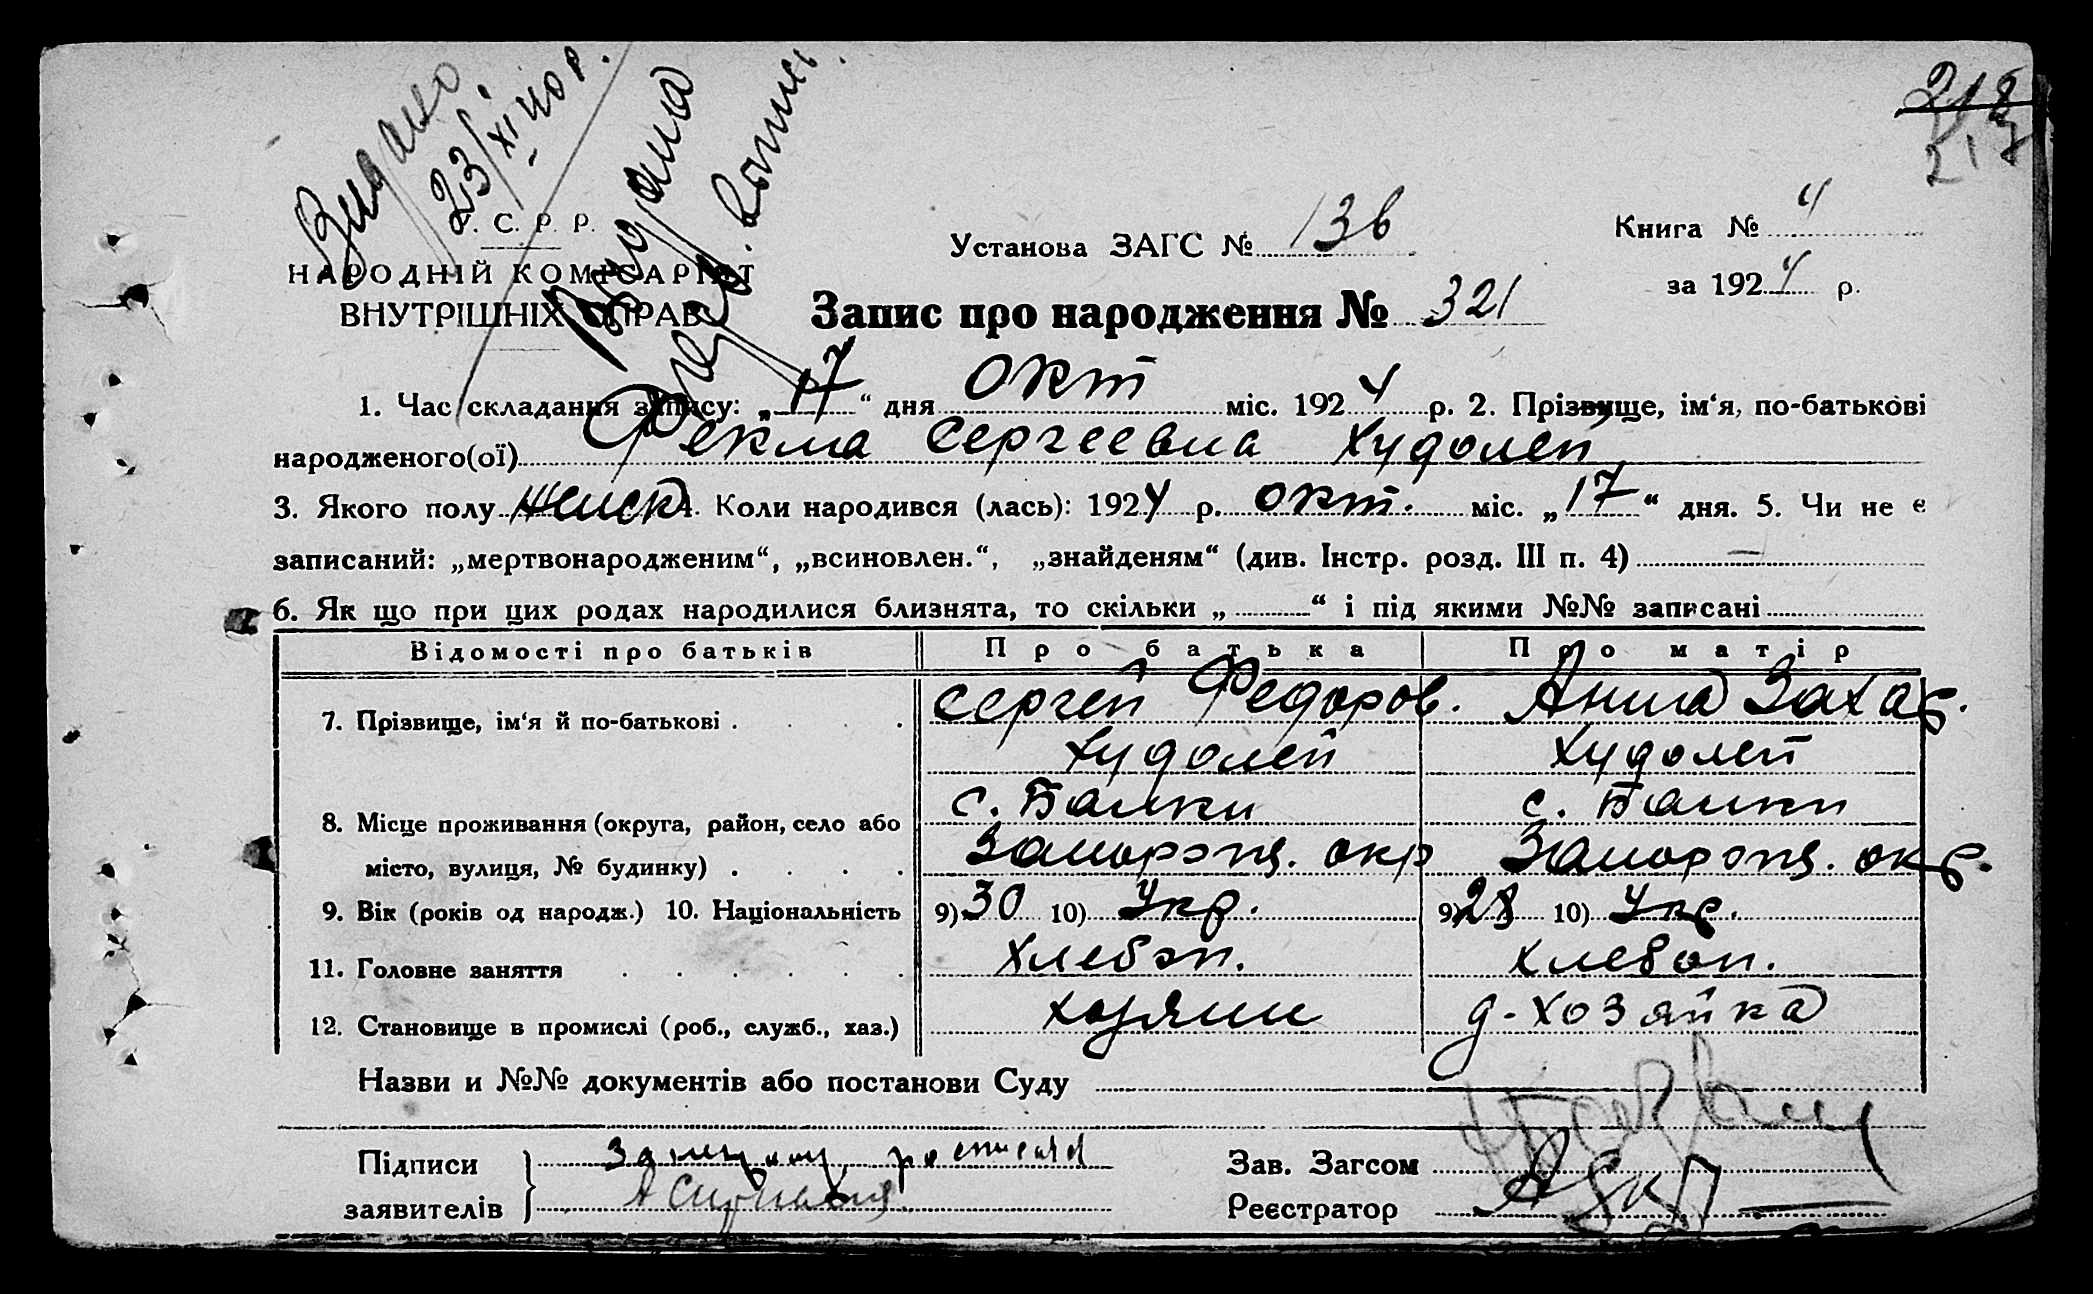 Видано
23/XI 40 р.
Видана
С. Р. Р.
Установа ЗАГС № 136
Книга № 4
НАРОДНІЙ КОМІСАРІЯТ
за 1924 р.
ВНУТРІШНІХ СПРАВ
Запис про народження № 321
1. Час складання запису: „17“ дня окт міс. 1924 р. 2. Прізвище, ім‘я, по-батькові
народженого(ої) Фекла Сергеевна Худолей
3. Якого полу женск. 4. Коли народився (лась): 1924 р. окт. міс. „17“ дня. 5. Чи не є
записаний: „мертвонародженим“, „всиновлен.“, „знайденям“ (див. Інстр. розд. III п. 4) —
6. Як що при цих родах народилися близнята, то скільки „ “ і під якими №№ записані
Відомості про батьків Про батька Про матір
7. Прізвище, ім‘я й по-батькові Сергей Федоров. Анна Захар.
Худолей Худолей
с. Балки с. Балки
8. Місце проживання (округа, район, село або
місто, вулиця, № будинку) Запорожц. окр Запорожц. окр.
9. Вік (років од народж.) 10. Національність 9) 30 10) Укр. 9) 28 10) Укр.
11. Головне заняття Хлебоп. Хлебоп.
12. Становище в промислі (роб., служб., хаз.) хозяин д. хозяйка
Назви и №№ документів або постанови Суду
Підписи
Зав. Загсом
заявителів
Реєстратор